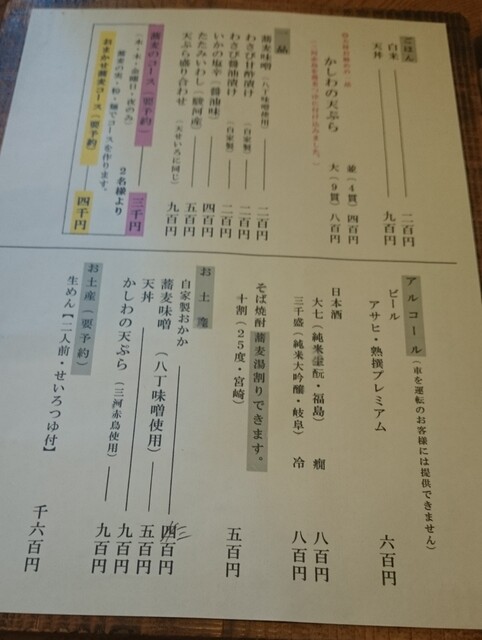 ごはん
白米 二百円
天丼 九百円
かしわの天ぷら
並(4貫)四百円
大(9貫)八百円
一品
蕎麦味噌(八丁味噌使用) 二百円
わさび甘酢漬け 二百円
わさび醤油漬け(自家製) 二百円
いかの塩辛(醤油味) 四百円
たたみいわし(駿河産) 五百円
天ぷら盛り合わせ(天せいろに同じ) 九百円
蕎麦のコース(要予約) 三千円
(水・木・金曜日・夜のみ) 2名様より
蕎麦の実・粉・麺でコースを作ります。
おまかせ蕎麦コース(要予約) 四千円
アルコール(車を運転のお客様には提供できません)
ビール
アサヒ・熟撰プレミアム 六百円
日本酒
大七(純米生酛・福島) 燗 八百円
三千盛(純米大吟醸・岐阜) 冷 八百円
そば焼酎 蕎麦湯割りできます。
十割(25度・宮崎) 五百円
お土産
自家製おかか 百円
蕎麦味噌(八丁味噌使用) 五百円
天丼 九百円
かしわの天ぷら(三河赤鳥使用) 九百円
お土産(要予約)
生めん【二人前・せいろつゆ付】 千六百円